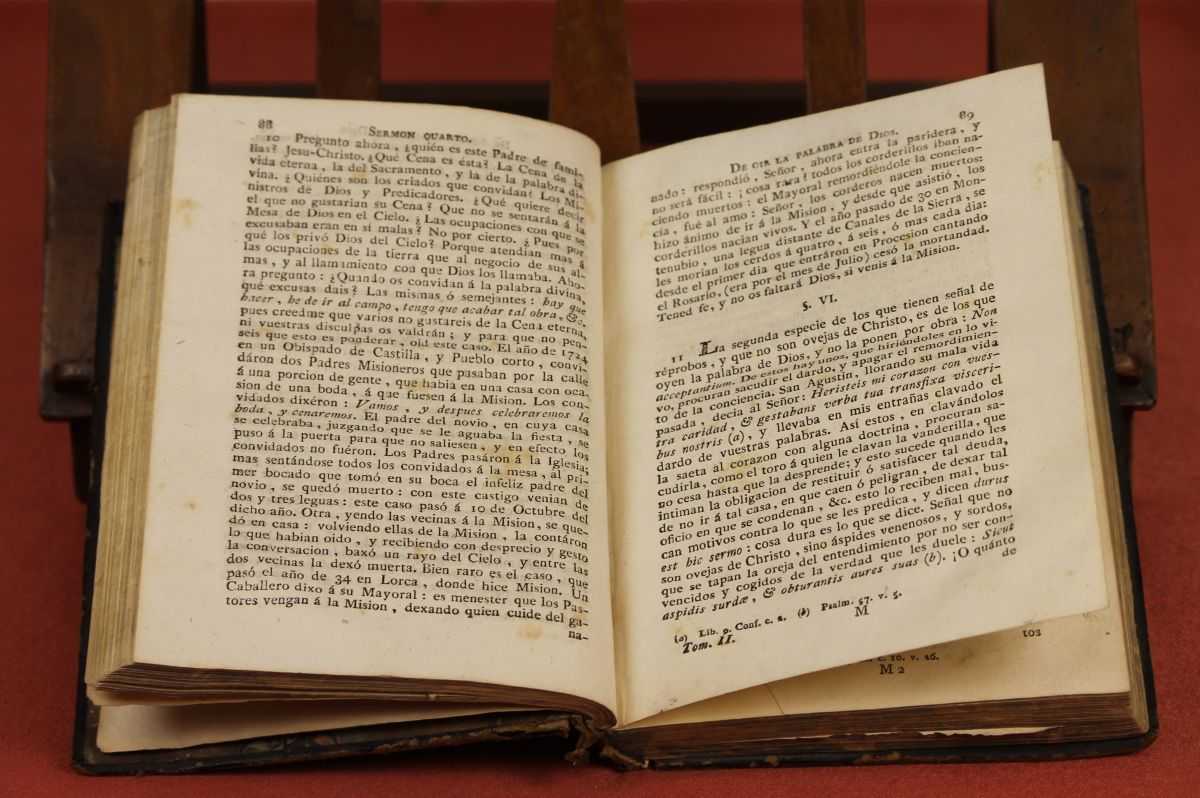 88
SERMON QUARTO.
10 Pregunto ahora, ¿quién es este Padre de fami-
lias? Jesu-Christo. ¿Qué Cena es ésta? La Cena de la
vida eterna, la del Sacramento, y la de la palabra di-
vina. ¿Quiénes son los criados que convidan? Los Mi-
nistros de Dios y Predicadores. ¿Qué quiere decir
el que no gustarian su Cena? Que no se sentarán á la
Mesa de Dios en el Cielo. ¿Las ocupaciones con que se
excusaban eran en sí malas? No por cierto. ¿Pues por
qué los privó Dios del Cielo? Porque atendian mas á
las ocupaciones de la tierra que al negocio de sus al-
mas, y al llamamiento con que Dios los llamaba. Aho-
ra pregunto: ¿Quando os convidan á la palabra divina,
qué excusas dais? Las mismas ó semejantes: hay que
hacer, he de ir al campo, tengo que acabar tal obra, &c.
pues creedme que varios no gustareis de la Cena eterna,
ni vuestras disculpas os valdrán; y para que no pen-
seis que esto es ponderar, oid este caso. El año de 1724
en un Obispado de Castilla, y Pueblo corto, convi-
dáron dos Padres Misioneros que pasaban por la calle
á una porcion de gente, que habia en una casa con oca-
sion de una boda, á que fuesen á la Mision. Los con-
vidados dixéron: Vamos, y despues celebraremos la
boda, y cenaremos. El padre del novio, en cuya casa
se celebraba, juzgando que se le aguaba la fiesta, se
puso á la puerta para que no saliesen, y en efecto los
convidados no fuéron. Los Padres pasáron á la Iglesia;
mas sentándose todos los convidados á la mesa, al pri-
mer bocado que tomó en su boca el infeliz padre del
novio, se quedó muerto: con este castigo venian de
dos y tres leguas: este caso pasó á 10 de Octubre del
dicho año. Otra, yendo las vecinas á la Mision, se que-
dó en casa: volviendo ellas de la Mision, la contáron
lo que habian oido, y recibiendo con desprecio y gesto
la conversacion, baxó un rayo del Cielo, y entre las
dos vecinas la dexó muerta. Bien raro es el caso, que
pasó el año de 34 en Lorca, donde hice Mision. Un
Caballero dixo á su Mayoral: es menester que los Pas-
tores vengan á la Mision, dexando quien cuide del ga-
na-
89
DE OIR LA PALABRA DE DIOS.
nado: respondió, Señor, ahora entra la paridera, y
no será fácil: ¡cosa rara! todos los corderillos iban na-
ciendo muertos: el Mayoral remordiéndole la concien-
cia, fué al amo: Señor, los corderos nacen muertos:
hizo ánimo de ir á la Mision, y desde que asistió, los
corderillos nacian vivos. Y el año pasado de 30 en Mon-
tenubio, una legua distante de Canales de la Sierra, se
les morian los cerdos á quatro, á seis, ó mas cada dia:
desde el primer dia que entráron en Procesion cantando
el Rosario, (era por el mes de Julio) cesó la mortandad.
Tened fe, y no os faltará Dios, si venis á la Mision.
§. VI.
11 La segunda especie de los que tienen señal de
réprobos, y que no son ovejas de Christo, es de los que
oyen la palabra de Dios, y no la ponen por obra: Non
acceptantium. De estos hay unos, que hiriéndoles en lo vi-
vo, procuran sacudir el dardo, y apagar el remordimien-
to de la conciencia. San Agustin, llorando su mala vida
pasada, decia al Señor: Heristeis mi corazon con vues-
tra caridad, & gestabans verba tua transfixa visceri-
bus nostris (a), y llevaba en mis entrañas clavado el
dardo de vuestras palabras. Así estos, en clavándolos
la saeta al corazon con alguna doctrina, procuran sa-
cudirla, como el toro á quien le clavan la vanderilla, que
no cesa hasta que la desprende; y esto sucede quando les
intiman la obligacion de restituir ó satisfacer tal deuda,
de no ir á tal casa, en que caen ó peligran, de dexar tal
oficio en que se condenán, &c. esto lo reciben mal, bus-
can motivos contra lo que se les predica, y dicen durus
est hic sermo: cosa dura es lo que se dice. Señal que no
son ovejas de Christo, sino áspides venenosos, y sordos,
que se tapan la oreja del entendimiento por no ser con-
vencidos y cogidos de la verdad que les duele: Sicut
aspidis surdæ, & obturantis aures suas (b). ¡O quánto
de
(a) Lib. 9. Conf. c. 2. (b) Psalm. 57. v. 5.
Tom. II. M
103
c. 10. v. 16.
M 2